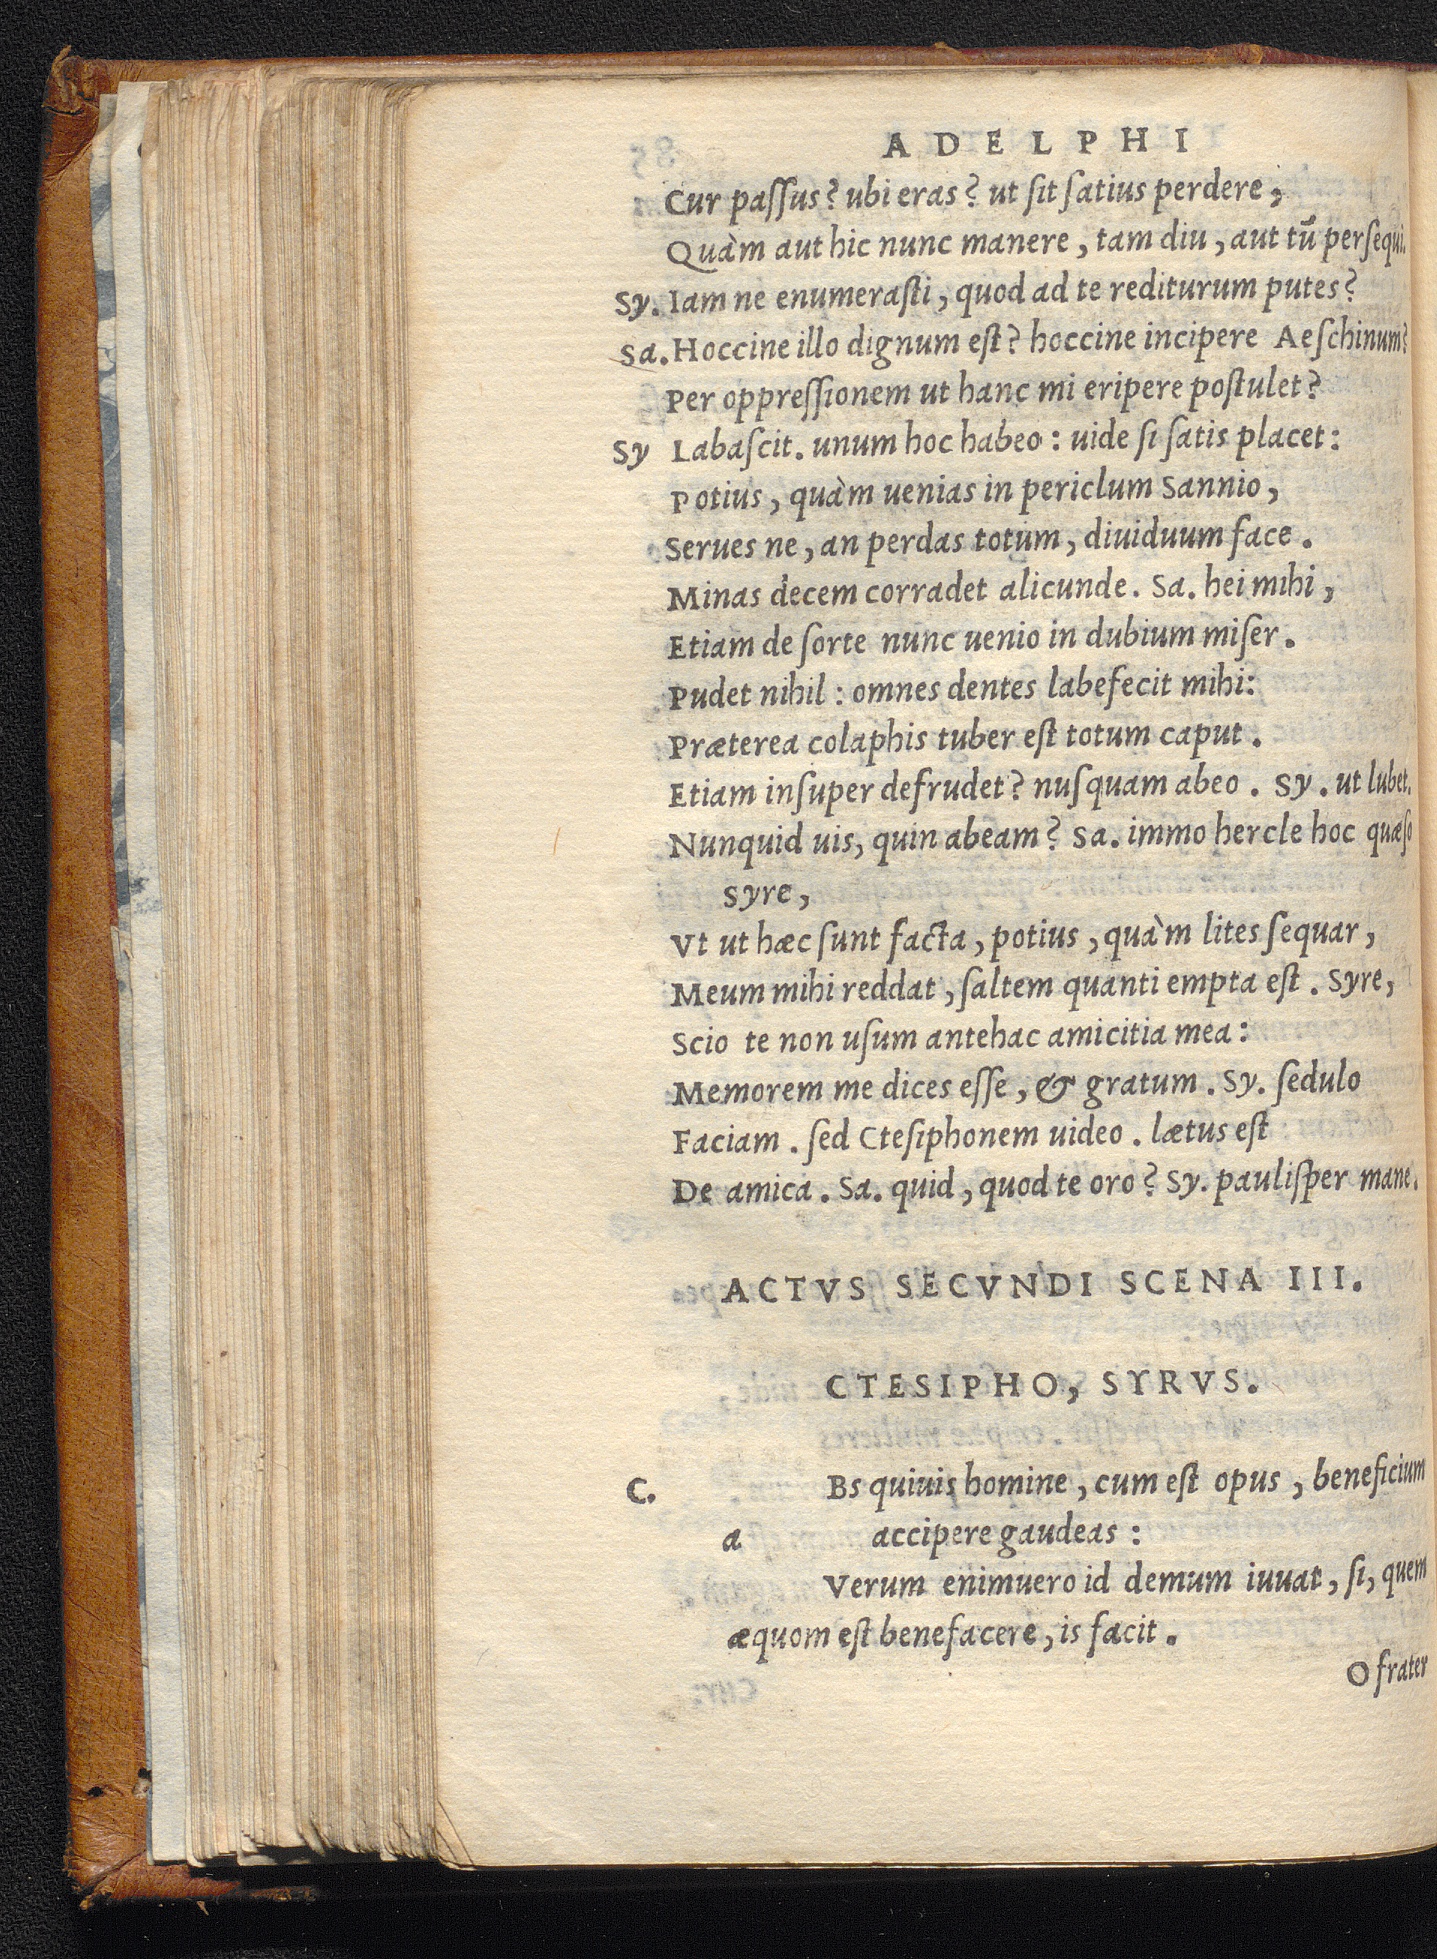 ADELPHI
Cur paſſus? ubi eras? ut ſit ſatius perdere,
Quàm aut hic nunc manere, tam diu, aut tū perſequi.
Sy. Iam ne enumeraſti, quod ad te rediturum putes?
Sa. Hoccine illo dignum eſt? hoccine incipere Aeſchinum?
Per oppreſſionem ut hanc mi eripere poſtulet?
Sy Labaſcit. unum hoc habeo: uide ſi ſatis placet:
Potius, quàm uenias in periclum Sannio,
Serues ne, an perdas totum, diuiduum face.
Minas decem corradet alicunde. Sa. hei mihi,
Etiam de ſorte nunc uenio in dubium miſer.
Pudet nihil: omnes dentes labefecit mihi:
Præterea colaphis tuber eſt totum caput.
Etiam inſuper defrudet? nuſquam abeo. Sy. ut lubet.
Nunquid uis, quin abeam? Sa. immo hercle hoc quæſo
Syre,
Vt ut hæc ſunt facta, potius, quàm lites ſequar,
Meum mihi reddat, ſaltem quanti empta eſt. Syre,
Scio te non uſum antehac amicitia mea:
Memorem me dices eſſe, & gratum. Sy. ſedulo
Faciam. ſed Cteſiphonem uideo. lætus eſt
De amica. Sa. quid, quod te oro? Sy. pauliſper mane.
ACTVS SECVNDI SCENA III.
CTESIPHO, SYRVS.
C. Bs quiuis homine, cum eſt opus, beneficium
a accipere gaudeas:
Verum enimuero id demum iuuat, ſi, quem
æquom eſt benefacere, is facit.
O frater